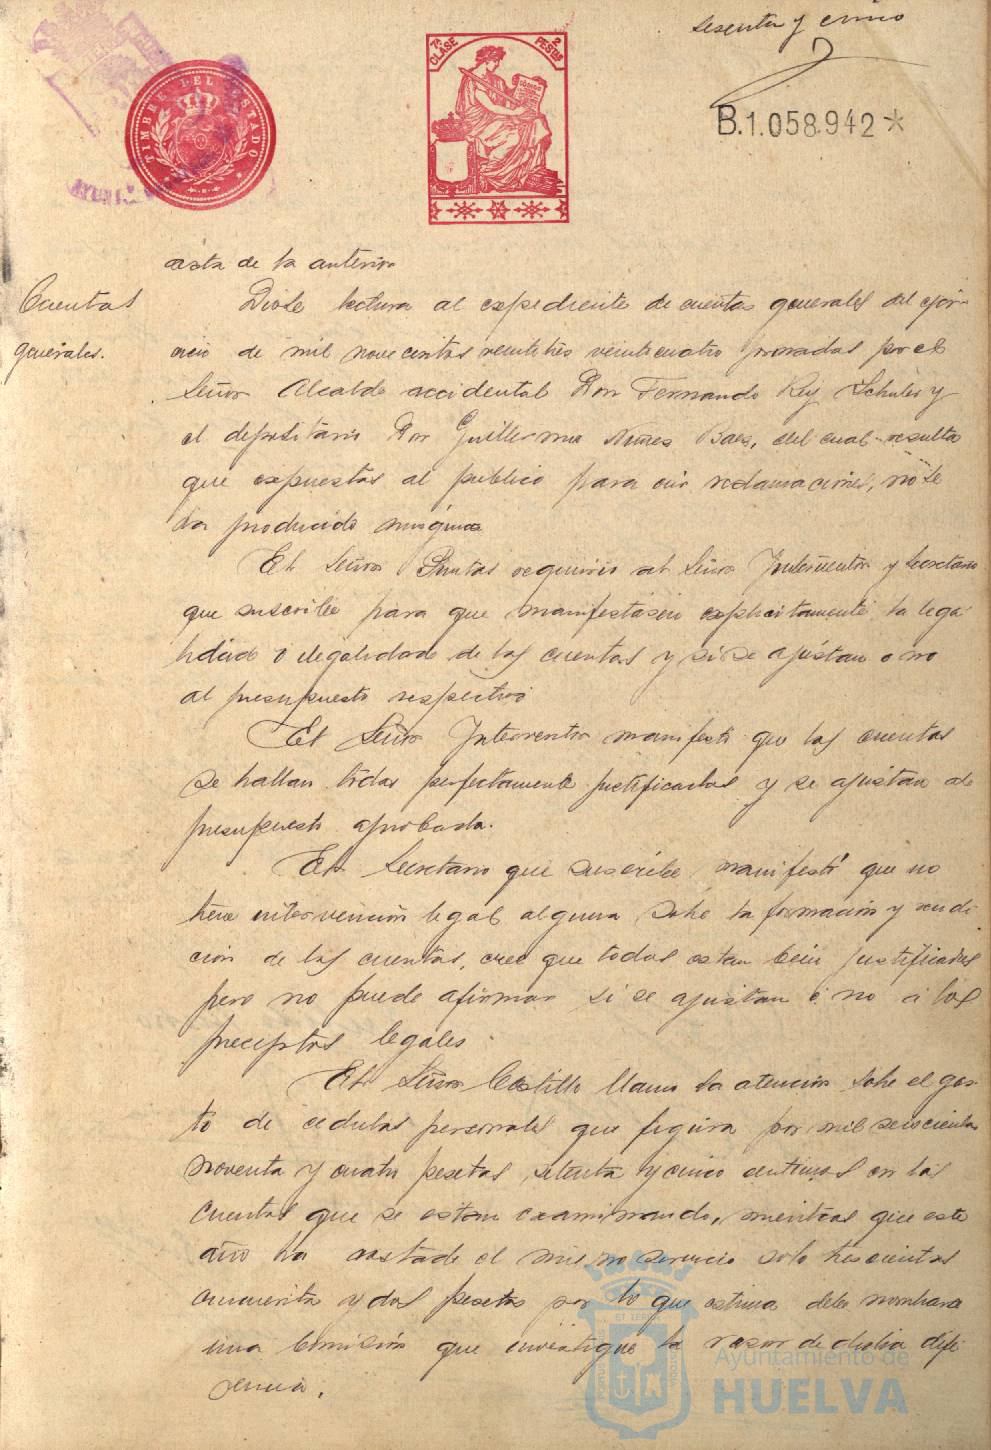 sesenta y cinco
TIMBRE DEL ESTADO
7ª CLASE
2 PESTAS
B.1.058.942*
acta de la anterior
Cuentas
generales.
Diose lectura al expediente de cuentas generales del ejer-
cicio de mil novecientos veintitres veinticuatro por el
Señor Alcalde accidental Don Fernando Rey Schuler y
el depositario Don Guillermo Nuñes Baes, del cual resulta
que expuestas al publico para oir reclamaciones, no se
ha producido ninguna
El Señor Puntas requirio al Señor Interventor y Secretario
que suscribe para que manifestasen explicitamente la lega
lidad o ilegalidad de las cuentas y si se ajustan o no
al presupuesto respectivo
El Señor Interventor manifestó que las cuentas
se hallan todas perfectamente justificadas y se ajustan al
presupuesto aprobado.
El Secretario que suscribe manifestó que no
tiene intervención legal alguna sobre la formación y rendi
cion de las cuentas, cree que todas estan bien justificadas
pero no puede afirmar si se ajustan ó no á los
preceptos legales.
El Señor Castillo llama la atención sobre el gas-
to de cedulas personales que figura por mil seiscientas
noventa y cuatro pesetas setenta y cinco centimos en las
cuentas que se estan examinando, mientras que este
año ha costado el mismo servicio solo trescientas
cincuenta y dos pesetas por lo que estima debe nombrarse
una Comisión que investigue la razon de dicha dife
rencia.
Ayuntamiento de
HUELVA